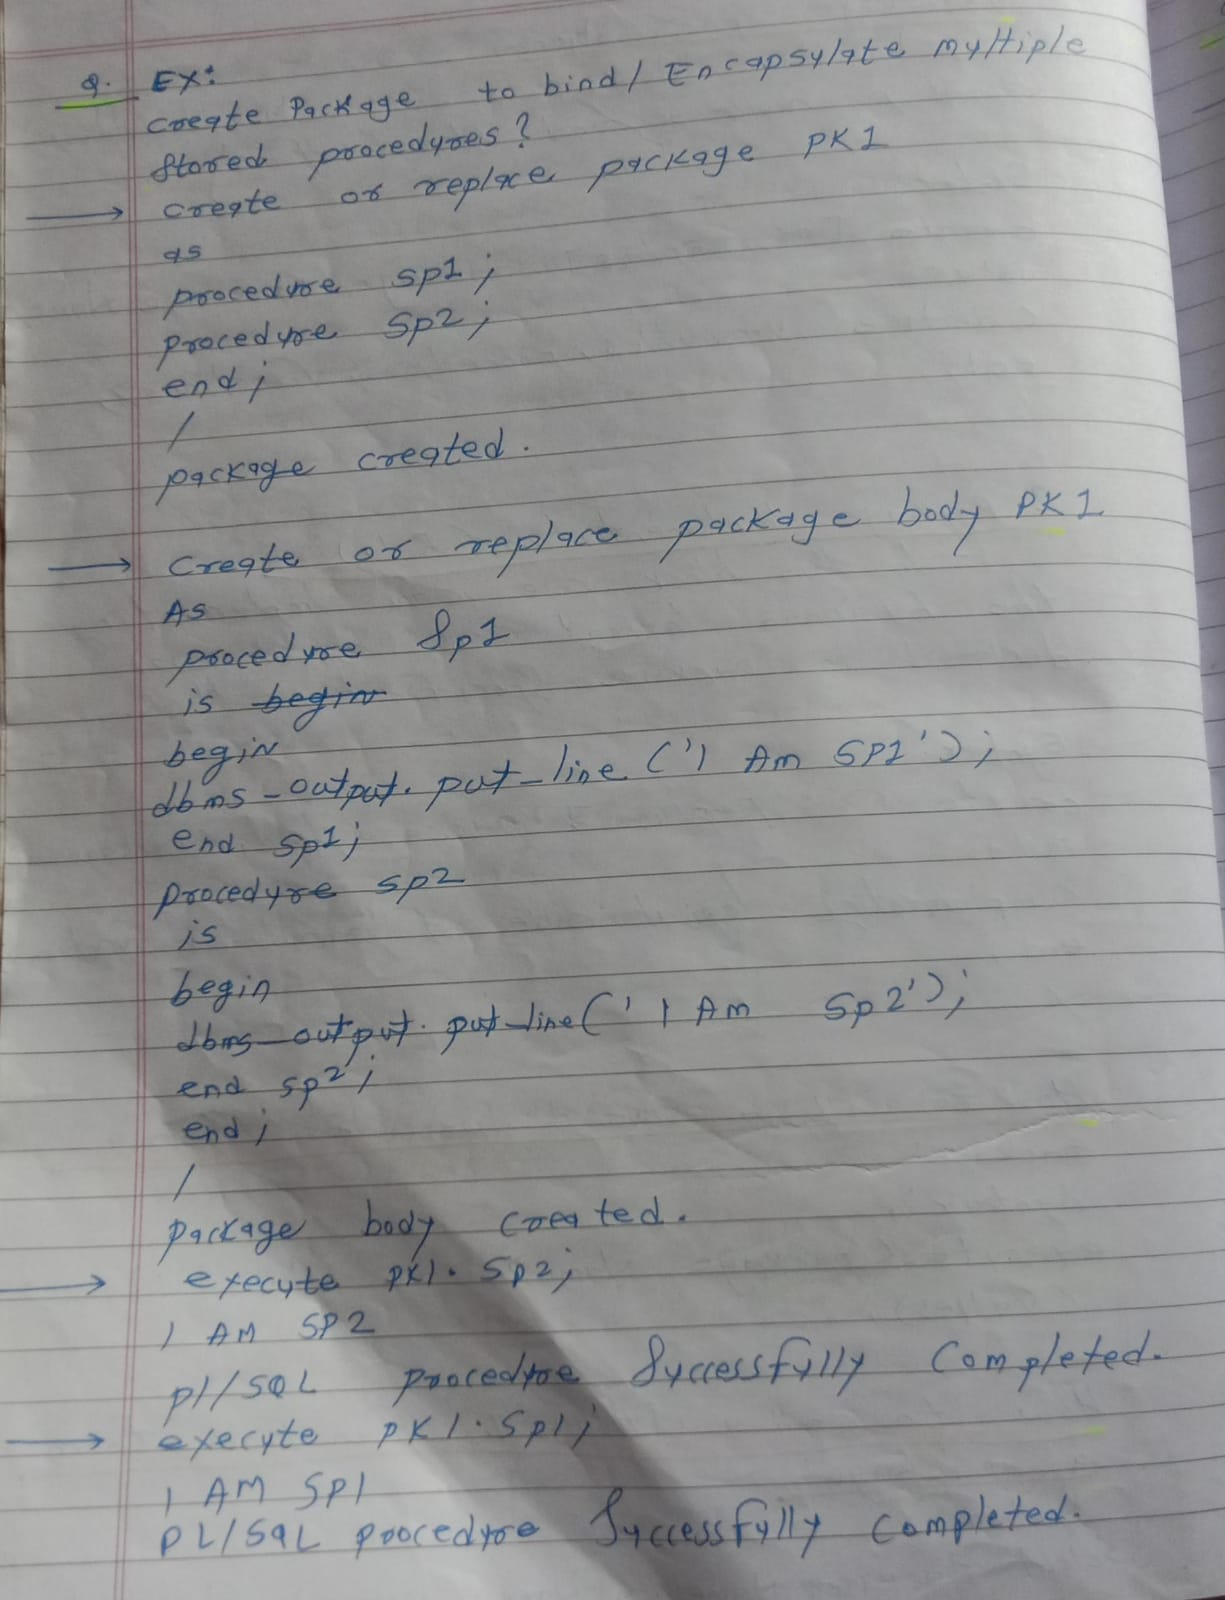 Q. EX:
create Package to bind / Encapsulate multiple
stored procedures?
→ create or replace package PK1
as
procedure sp1;
procedure sp2;
end;
/
package created.
→ Create or replace package body PK1
As
procedure Sp1
is begin
begin
dbms_output.put_line('I Am SP1');
end sp1;
procedure sp2
is
begin
dbms_output.put_line('I Am Sp2');
end sp2;
end;
/
package body created.
→ execute pk1.Sp2;
I AM SP2
pl/SQL procedure Successfully Completed.
→ execute pK1.Sp1;
I AM SP1
PL/SQL procedure Successfully completed.